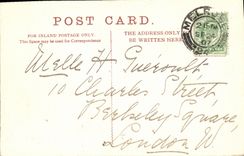 POST CARD.
FOR INLAND POSTAGE ONLY.
This Space may be used for Correspondence
THE ADDRESS ONLY
BE WRITTEN HERE
Melle H Gueroult
10 Charles Street
Berkeley Square
London W.